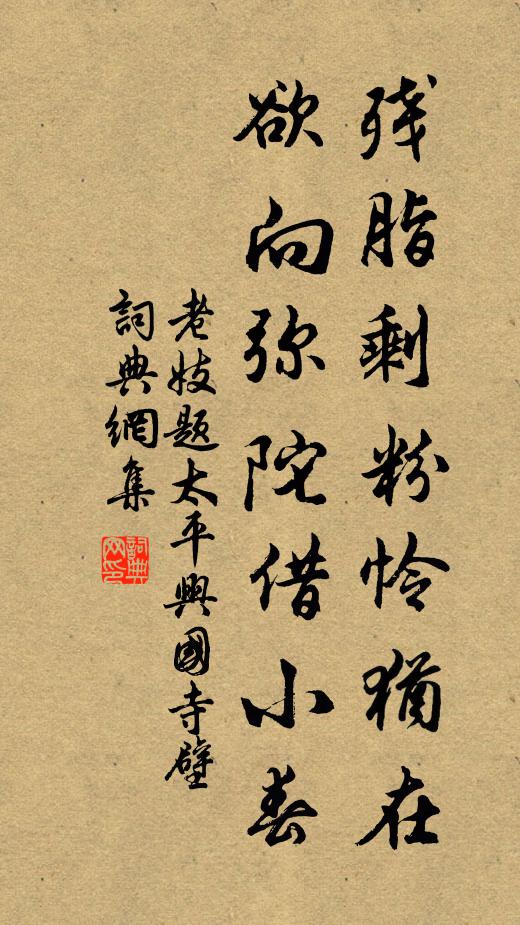 残脂剩粉怜猶在
欲向弥陀借小春
老妓题太平興國寺壁
詞典網集
詞典
网印